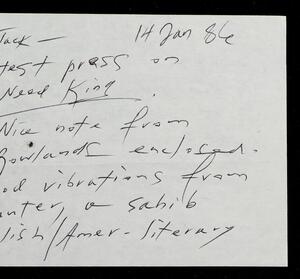 Jack — 14 Jan 86
test press on
Need King.
Nice note from
Rowlands enclosed.
vibrations from
a sahib
/Amer-literary